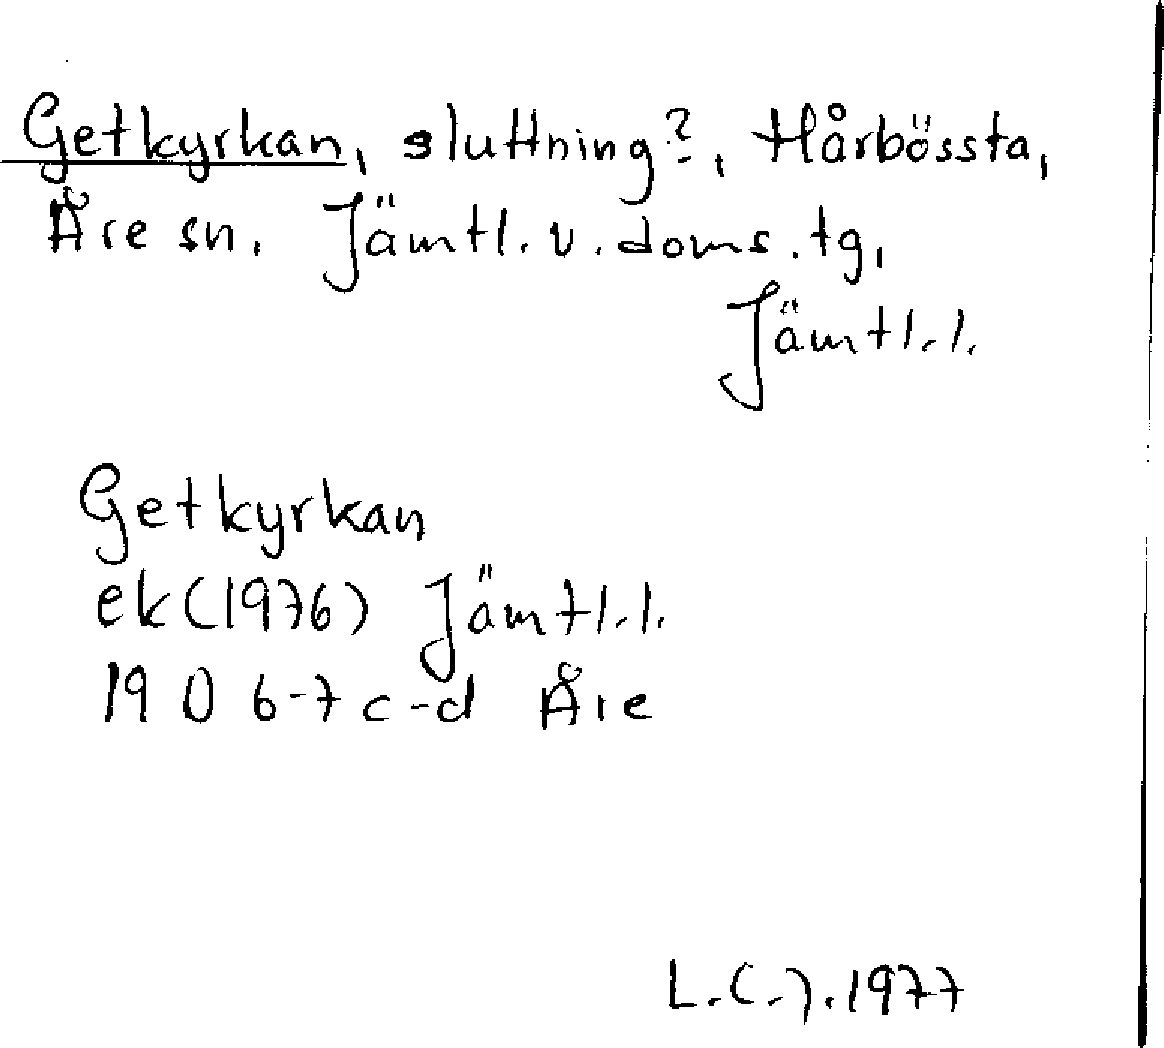 Getkyrkan, sluttning?, Hårbössta,
Åre sn, Jämtl. v. doms. tg,
Jämtl. l.
Getkyrkan
ek (1976) Jämtl. l.
19 D 6-7 c-d Åre
1977